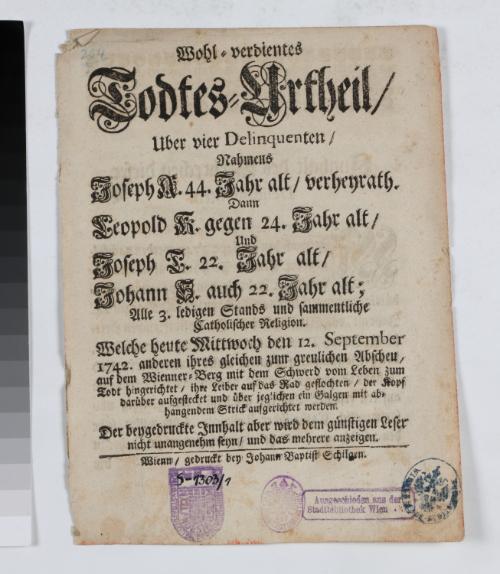 Wohl-verdientes
Todtes-Urtheil/
Uber vier Delinquenten/
Nahmens
Joseph K. 44. Jahr alt/ verheyrath.
Dann
Leopold K. gegen 24. Jahr alt/
Und
Joseph T. 22. Jahr alt/
Johann H. auch 22. Jahr alt;
Alle 3. ledigen Stands und sammentliche
Catholischer Religion.
Welche heute Mittwoch den 12. September
1742. anderen ihres gleichen zum greulichen Abscheu/
auf dem Wienner-Berg mit dem Schwerd vom Leben zum
Todt hingerichtet/ ihre Leiber auf das Rad geflochten/ der Kopf
darüber aufgestecket und über jeglichen ein Galgen mit ab-
hangendem Strick aufgerichtet werden.
Der beygedruckte Innhalt aber wird dem günstigen Leser
nicht unangenehm seyn/ und das mehrere anzeigen.
Wienn/ gedruckt bey Johann Baptist Schilgen.
S-1303/1
Ausgeschieden aus der
Stadtbibliothek Wien